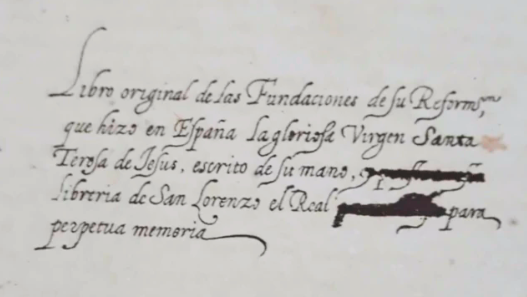 Libro original de las Fundaciones de su Reformon,
que hizo en España la gloriosa Virgen Santa
Teresa de Jesus, escrito de su mano,
libreria de San Lorenzo el Real para
perpetua memoria